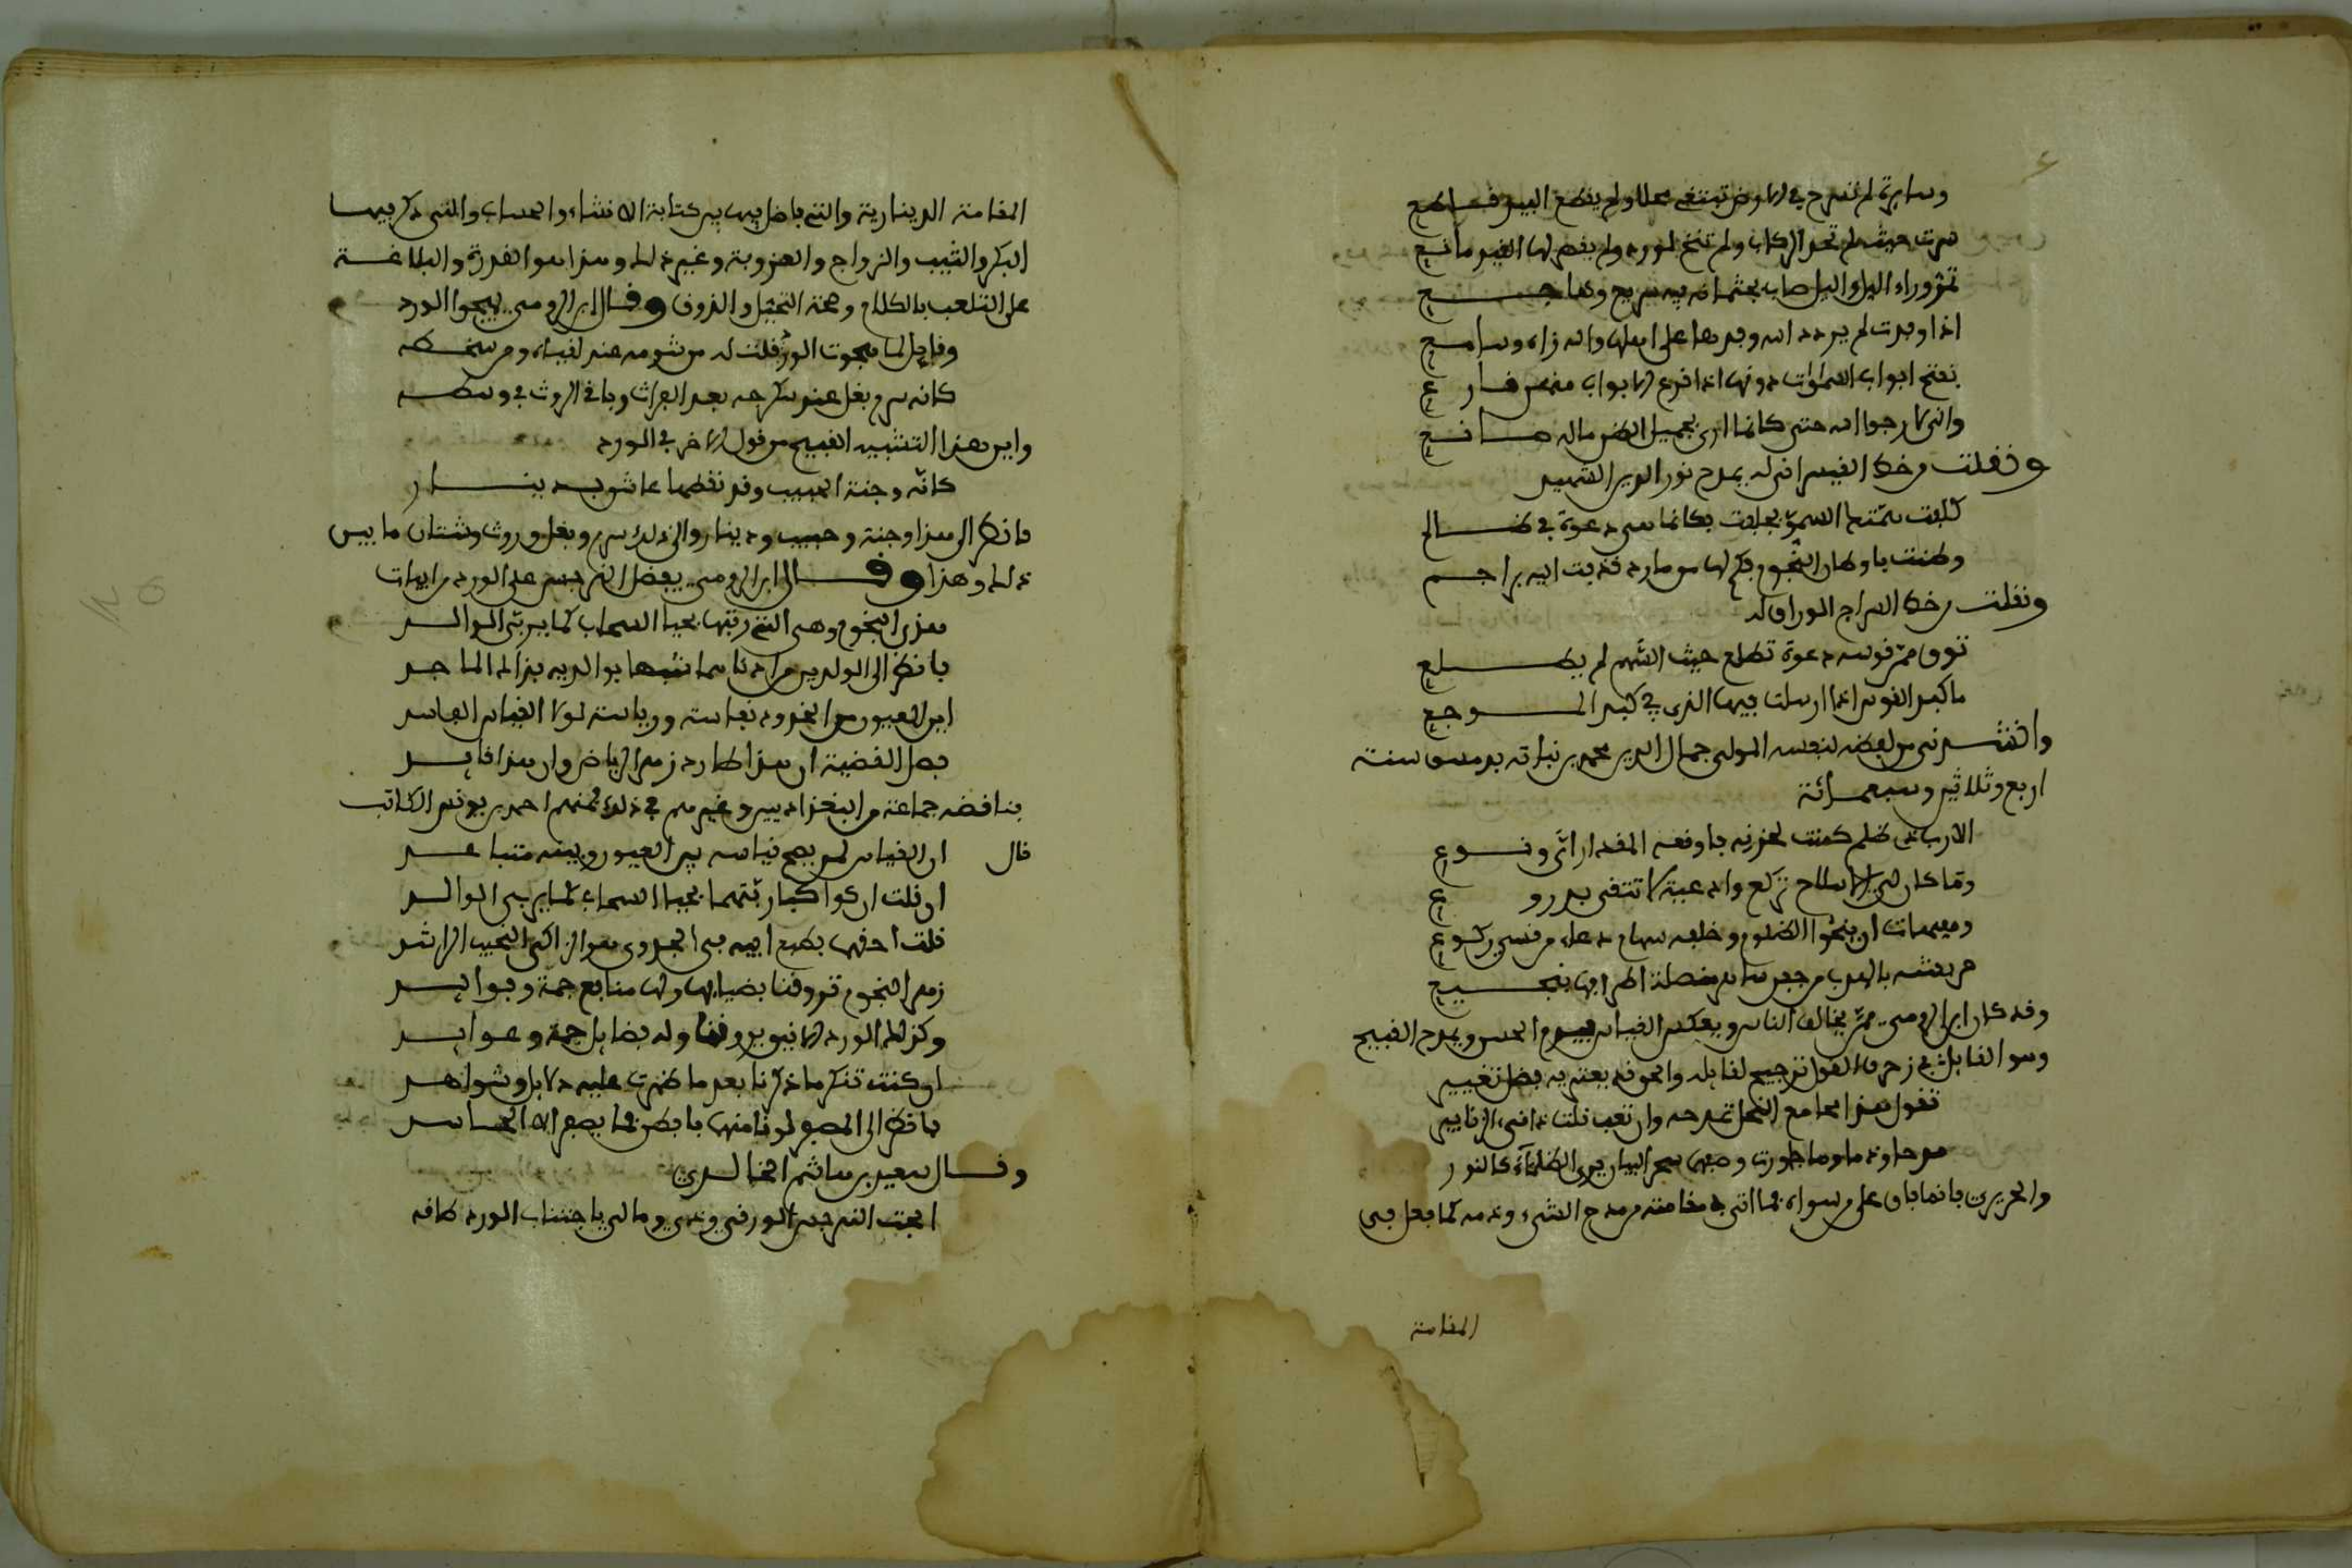 وسارية لم تسرح في الارض تبتغي محلا ولم يقطع البيد قاطع
سرت حيث لم تحد الركاب ولم تنخ لورد ولم يقصر لها القيد مانع
تمر وراء الليل والليل ضارب بجثمانه فيه سمير وهاجع
اذا وفدت لم يردد الله وفدها على اهلها والله راء وسامع
تفتح ابواب السماوات دونها اذا قرع الابواب منهن قارع
واني لارجو الله حتى كانما ارى بجميل الظن ما الله صانع
ونقلت من خط القيسراني له يمدح نور الدين الشهيد
كلفت همتك السمو فحلقت فكانما هي دعوة في ظالم
وظنت باوطان النجوم فكم لها من مارد قذفت اليه براجم
ونقلت من خط السراج الوراق له
توق من قوسه دعوة تطلع حيث السهم لم يطلع
ما كبد القوس اذا ارسلت فيها الذي في كبد الموجع
وانشدني من لفظه لنفسه المولى جمال الدين محمد بن نباتة بدمشق سنة
اربع وثلاثين وسبعمائة
الا رب ذي ظلم كمنت لحربه فاوقعه المقدار اي وقوع
وما كان لي الا سلاح تركع وادعية لا تتقى بدروع
وهيهات ان ينجو الظلوم وخلفه سهام دعاء من قسي ركوع
مريشة بالهدب من جفن ساهر منصلة اطرافها بنجيع
وقد كان ابن الرومي ممن يخالف الناس ويعكس القياس فيذم الحسن ويمدح القبيح
وهو القائل في زخرف القول ترجيح لقائله والحق قد يعتريه بعض تغيير
تقول هذا مجاج النحل تمدحه وان تعب قلت ذا قيء الزنابير
مدحا وذما وما جاوزت وصفهما سحر البيان يري الظلماء كالنور
والحريري فانه فاق على من سواه بما اتى في مقامته من مدح الشيء وذمه كما فعل في
المقامة
المقامة الدينارية والتي فاضل فيها بين كتابة الانشاء والحساب والتي ذكر فيها
البكر والثيب والزواج والعزوبة وغير ذلك وهذا هو القدرة والبلاغة
على التلعب بالكلام وصحة التخيل والذوق وقال ابن الرومي يهجو الورد
وقائل لم هجوت الورد قلت له من شؤمه عند لقياه ومن سخطه
كانه سرم بغل حين سكرجه بعد البراث وباقي الروث في وسطه
واين هذا التشبيه القبيح من قول الاخر في الورد
كانه وجنة الحبيب وقد نقطها عاشق بدينار
فانظر الى هذا وجنة وحبيب ودينار والى ذلك سرم وبغل وروث وشتان ما بين
ذلك وهذا وقال ابن الرومي يفضل النرجس على الورد من ابيات
هذي النجوم وهي التي ربتها بحيا السحاب كما يربي الوالد
فانظر الى الولدين من ادناهما شبها بوالديه فذاك الماجد
اين العيون من الخدود نفاسة ورياسة لولا القياس الفاسد
فصل القضية ان هذا طارد زهر الرياض وان هذا قائد
فناقضه جماعة من البغداديين وغيرهم في ذلك فمنهم احمد بن يونس الكاتب
قال ان القياس لمن يصح قياسه بين العيون وبينه متباعد
ان قلت ان كواكبا ربتهما بحيا السحاب كما يربي الوالد
قلت احقهما بطبع ابيه في الجدوى هو الزاكي النجيب الراشد
زهر النجوم تروقنا بضيائها ولها منافع جمة وفوائد
وكذلك الورد الانيق يروقنا وله فضائل جمة وعوائد
ان كنت تنكر ما ذكرنا بعد ما ظهرت عليه دلائل وشواهد
فانظر الى المصفر لونا منهما فافطن فما يصفر الا الحاسد
وقال سعيد بن هاشم الخالدي
ابحت النرجس البري ودي وما لي باجتناب الورد طاقه